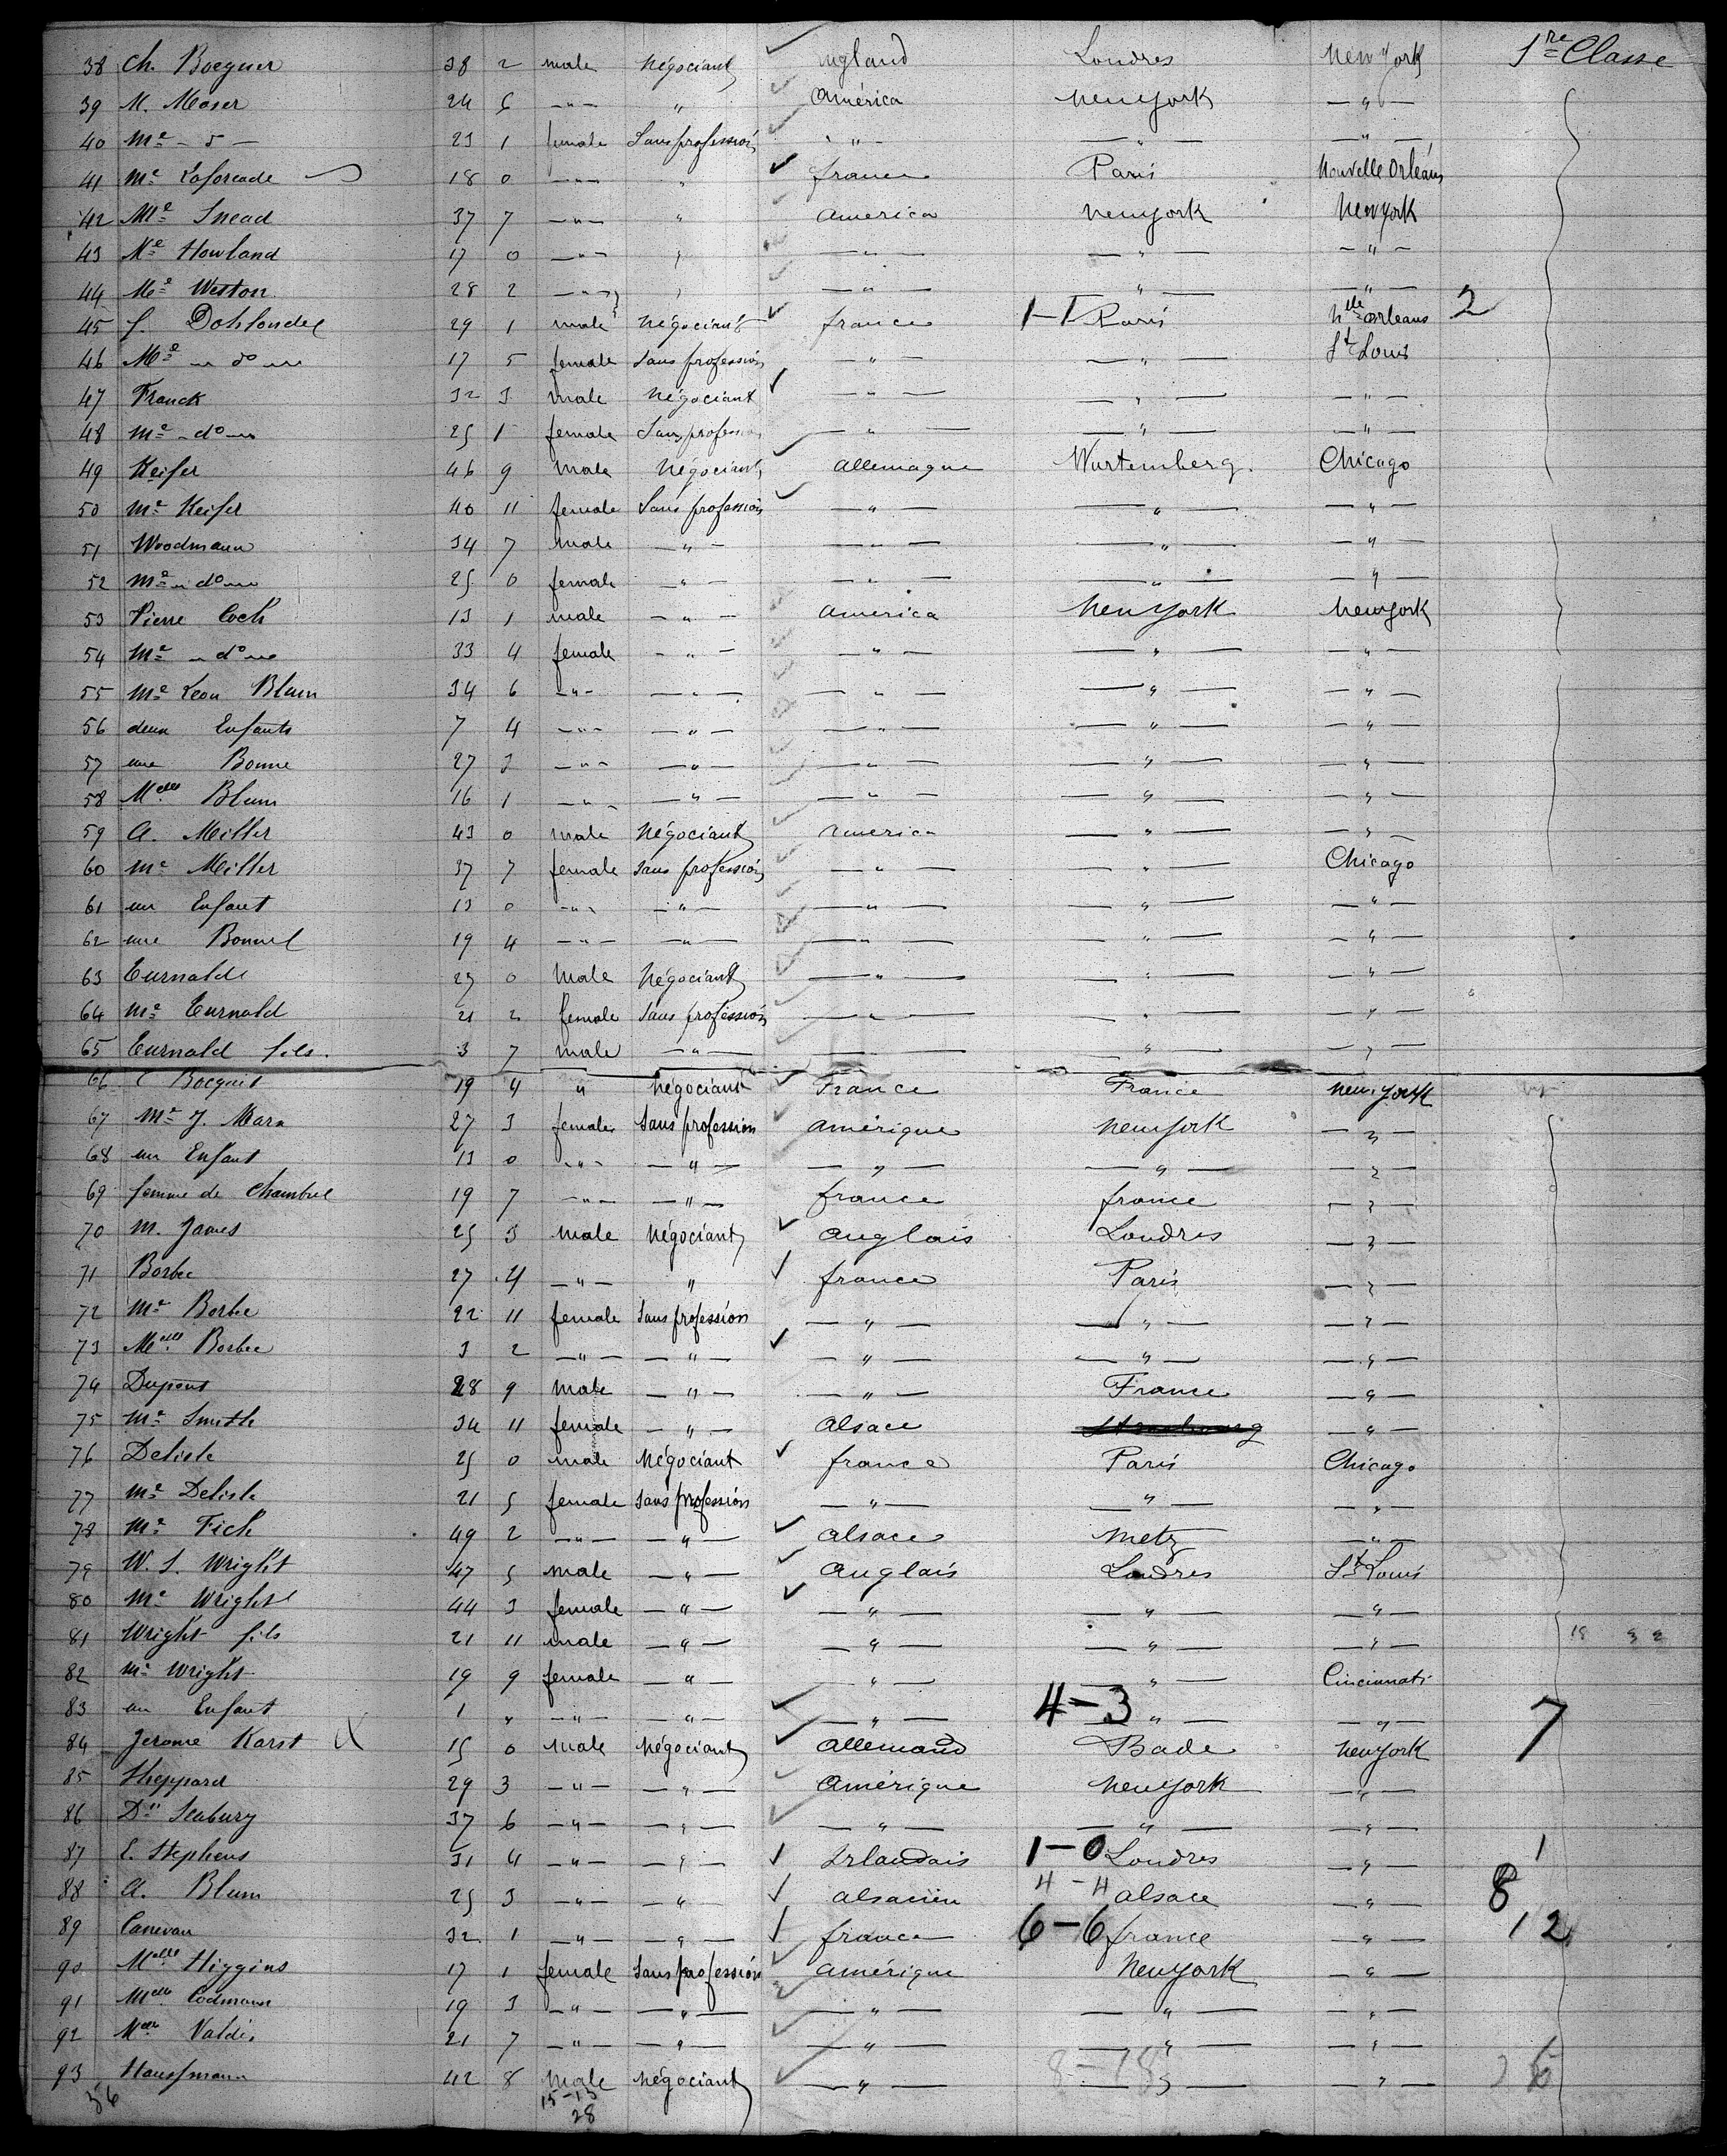 38 Ch. Bocquer 38 2 male Négociant England Londres New York 1re Classe
39 M. Moser 24 6 —"— " América New York —"—
40 Me — d — 23 1 female Sans profession —"— —"— —"—
41 Me Laforcade 18 0 —"— " france Paris Nouvelle Orléans
42 Me Snead 37 7 —"— " America New York New York
43 Me Howland 17 0 —"— " —"— —"— —"—
44 Me Weston 28 2 —"— " —"— —"— —"—
45 f. 29 1 male Négociant france 1-1 Paris Nlle Orleans 2
46 Me — do — 17 5 female Sans profession —"— —"— St Louis
47 Franck 32 3 male Négociant —"— —"— —"—
48 Me — do — 25 1 female Sans profession —"— —"— —"—
49 Keifer 46 9 Male Négociant Allemagne Wurtemberg. Chicago
50 Me Keifer 40 11 female Sans profession —"— —"— —"—
51 Woodmann 34 7 Male —"— —"— —"— —"—
52 Me — do — 25 0 female —"— —"— —"— —"—
53 Pierre Coch 13 1 male —"— America New York New York
54 Me — do — 33 4 female —"— —"— —"— —"—
55 Me Leon Blum 34 6 —"— —"— —"— —"— —"—
56 deux Enfants 7 4 —"— —"— —"— —"— —"—
57 une Bonne 27 3 —"— —"— —"— —"— —"—
58 Melle Blum 16 1 —"— —"— —"— —"— —"—
59 A. Miller 43 0 male Négociant America —"— —"—
60 Me Miller 37 7 female Sans profession —"— —"— Chicago
61 un Enfant 13 0 —"— —"— —"— —"— —"—
62 une Bonne 19 4 —"— —"— —"— —"— —"—
63 Eurnalde 25 0 Male Négociant —"— —"— —"—
64 Me Eurnald 21 2 female Sans profession —"— —"— —"—
65 Eurnald fils. 3 7 male —"— —"— —"— —"—
66 Bocquet 19 4 " Négociant France France New York
67 Me J. Marx 27 3 female Sans profession Amérique New York —"—
68 un Enfant 13 0 —"— —"— —"— —"— —"—
69 femme de Chambre 19 7 —"— —"— france france —"—
70 M. James 25 3 male Négociant Anglais Londres —"—
71 Borbee 27 4 —"— " france Paris —"—
72 Me Borbee 22 11 female Sans profession —"— —"— —"—
73 Melle Borbee 3 2 —"— —"— —"— —"— —"—
74 Dupont 28 9 Male —"— —"— France —"—
75 Me Smith 34 11 female —"— Alsace Strasbourg —"—
76 Delisle 25 0 male Négociant france Paris Chicago
77 Me Delisle 21 5 female Sans profession —"— —"— —"—
78 Me Fich 49 2 —"— —"— Alsace Metz —"—
79 W. S. Wright 47 5 male —"— Anglais Londres St Louis
80 Me Wright 44 3 female —"— —"— —"— —"—
81 Wright fils 21 11 male —"— —"— —"— —"—
82 Me Wright 19 9 female —"— —"— —"— Cincinnati
83 un Enfant 1 " —"— —"— —"— 4-3 —"— —"— 7
84 Jerome Karst 15 0 male Négociant Allemand Bade New York
85 Sheppard 29 3 —"— —"— Amérique New York —"—
86 Dr Seabury 37 6 —"— —"— —"— —"— —"—
87 E. Stephens 31 4 —"— —"— Irlandais 1-0 Londres —"— 1
88 A. Blum 25 3 —"— —"— alsacien 4-4 alsace —"— 8
89 Canevan 32 1 —"— —"— france 6-6 france —"— 12
90 Melle Higgins 17 1 female Sans profession Amérique New York —"—
91 Melle Codmann 19 3 —"— —"— —"— —"— —"—
92 Melle Valdis 21 7 —"— —"— —"— —"— —"—
93 Haussmann 42 8 Male Négociant —"— 8-18 —"— —"— 26
56 15-13
28